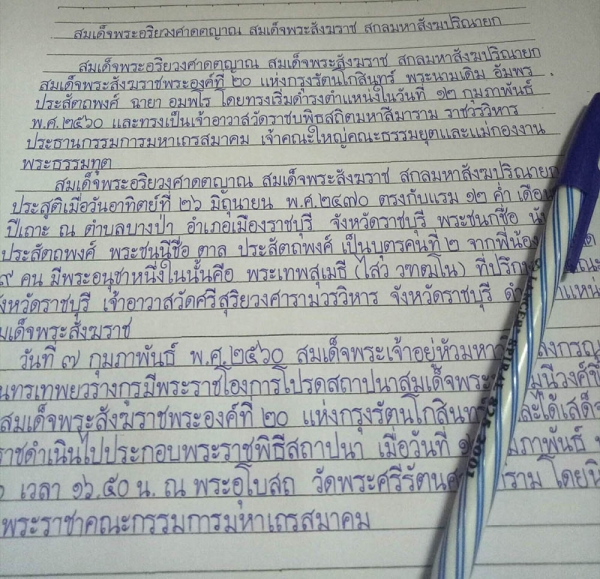 สมเด็จพระอริยวงศาคตญาณ สมเด็จพระสังฆราช สกลมหาสังฆปริณายก
สมเด็จพระอริยวงศาคตญาณ สมเด็จพระสังฆราช สกลมหาสังฆปริณายก
สมเด็จพระสังฆราชพระองค์ที่ ๒๐ แห่งกรุงรัตนโกสินทร์ พระนามเดิม อัมพร
ประสัตถพงศ์ ฉายา อมฺพโร โดยทรงเริ่มดำรงตำแหน่งในวันที่ ๑๒ กุมภาพันธ์
พ.ศ.๒๕๖๐ และทรงเป็นเจ้าอาวาสวัดราชบพิธสถิตมหาสีมาราม ราชวรวิหาร
ประธานกรรมการมหาเถรสมาคม เจ้าคณะใหญ่คณะธรรมยุตและแม่กองงาน
พระธรรมทูต
สมเด็จพระอริยวงศาคตญาณ สมเด็จพระสังฆราช สกลมหาสังฆปริณายก
ประสูติเมื่อวันอาทิตย์ที่ ๒๖ มิถุนายน พ.ศ.๒๔๗๐ ตรงกับแรม ๑๒ ค่ำ
ปีเถาะ ณ ตำบลบางป่า อำเภอเมืองราชบุรี จังหวัดราชบุรี พระชนกชื่อ
ประสัตถพงศ์ พระชนนีชื่อ ตาล ประสัตถพงศ์ เป็นบุตรคนที่ ๒ จากพี่น้อง
๙ คน มีพระอนุชาหนึ่งในนั้นคือ พระเทพสุเมธี (ไสว วฑฺฒโน)
จังหวัดราชบุรี เจ้าอาวาสวัดศรีสุริยวงศารามวรวิหาร จังหวัดราชบุรี
สมเด็จพระสังฆราช
วันที่ ๗ กุมภาพันธ์ พ.ศ.๒๕๖๐ สมเด็จพระเจ้าอยู่หัว
นทรเทพยวรางกูรมีพระราชโองการโปรดสถาปนาสมเด็จพระ มุนีวงศ์
สมเด็จพระสังฆราชพระองค์ที่ ๒๐ แห่งกรุงรัตนโกสิน และได้เสด็จ
ราชดำเนินไปประกอบพระราชพิธีสถาปนา เมื่อวันที่ กุมภาพันธ์
เวลา ๑๖.๕๐ น. ณ พระอุโบสถ วัดพระศรีรัตน โดย
พระราชาคณะกรรมการมหาเถรสมาคม